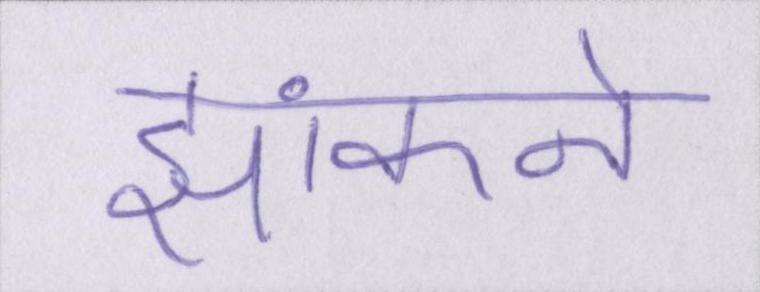 झांकने